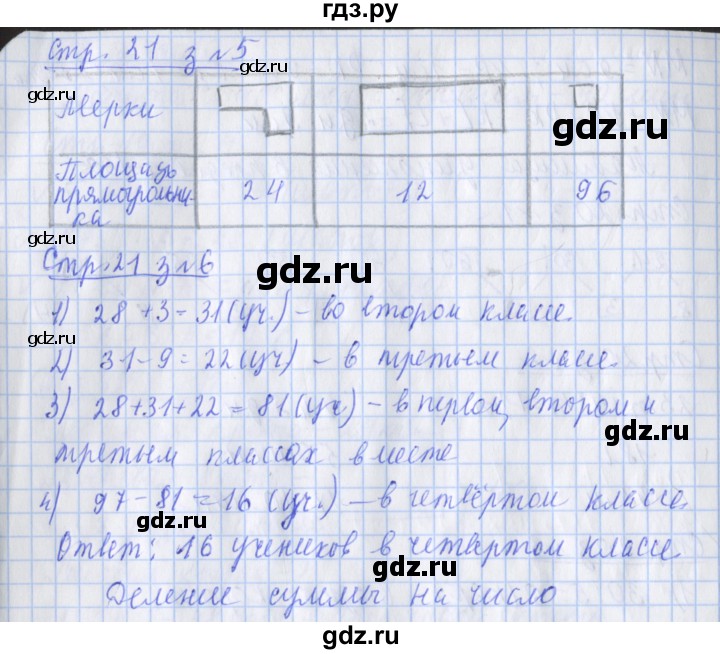 гдз.ру
Стр. 21 з №5
gdz.ru
gdz.ru
gdz.ru
Мерки
gdz.ru
Площадь
прямоугольни-
ка
24 12 96
gdz.ru
gdz.ru
Стр. 21 з №6
gdz.ru
1) 28 + 3 = 31 (уч.) – во втором классе.
gdz.ru
2) 31 - 9 = 22 (уч) – в третьем классе.
3) 28 + 31 + 22 = 81 (уч) – в первом, втором и
gdz.ru
третьем классах вместе
4) 97 - 81 = 16 (уч.) – в четвёртом классе.
gdz.ru
Ответ: 16 учеников в четвёртом классе.
gdz.ru
Деление суммы на число
gdz.ru
gdz.ru